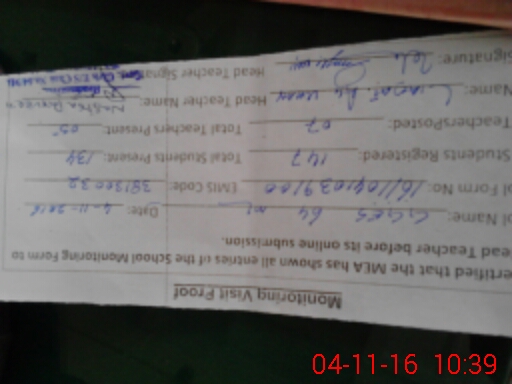 Monitoring Visit Proof
ertified that the MEA has shown all entries of the School Monitoring Form to
ead Teacher before its online submission.
ol Name: GGES 64 Date: 4-11-2016
ol Form No: EMIS Code: 38130032
Students Registered: 147 Total Students Present: 134
TeachersPosted: 07 Total Teachers Present: 05
Name: Head Teacher Name:
Signature: Head Teacher Signature
04-11-16 10:39